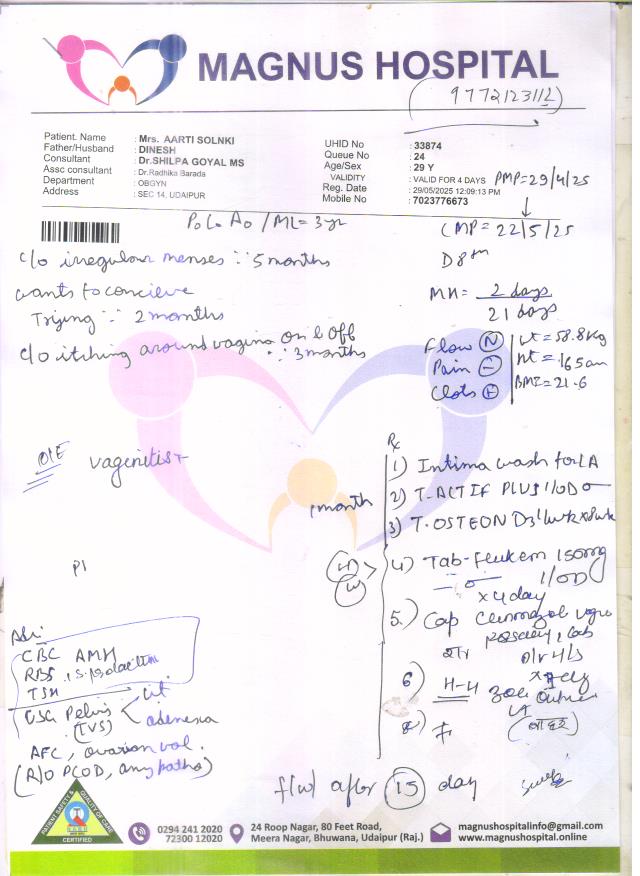 MAGNUS HOSPITAL
9772123112
Patient. Name : Mrs. AARTI SOLNKI
Father/Husband : DINESH
Consultant : Dr.SHILPA GOYAL MS
Assc consultant : Dr.Radhika Barada
Department : OBGYN
Address : SEC 14, UDAIPUR
UHID No : 33874
Queue No : 24
Age/Sex : 29 Y
VALIDITY : VALID FOR 4 DAYS
Reg. Date : 29/05/2025 12:09:13 PM
Mobile No : 7023776673
PMP=29/4/25
P0 L0 A0 / ML=3yr
LMP=22/5/25
D8
c/o irregular menses ∵ 5 months
wants to concieve
Trying ∵ 2 months
c/o itching around vagina on & off
∵ 3 months
MH= 2 days
21 days
Flow (N)
Pain (-)
Clots (+)
wt=58.8kg
Ht=165cm
BMI=21.6
O/E vaginitis+
P/
Rx
1) Intima wash for LA
2) T-ACTIF PLUS 1/OD
1 month
3) T.OSTEON D3 1/wk x 8wk
4) Tab-Flukem 150mg
1/OD
x 4 day
5.) Cap vagi
6)
LA
(बाहर)
Adv:
CBC AMH
RBS, S. prolactin
TSH
USG Pelvis
(TVS)
ut.
adenexa
AFC, ovarian vol.
(R/O PCOD, any patho)
f/w after 15 day
PATIENT SAFETY & QUALITY OF CARE
CERTIFIED
0294 241 2020
72300 12020
24 Roop Nagar, 80 Feet Road,
Meera Nagar, Bhuwana, Udaipur (Raj.)
magnushospitalinfo@gmail.com
www.magnushospital.online